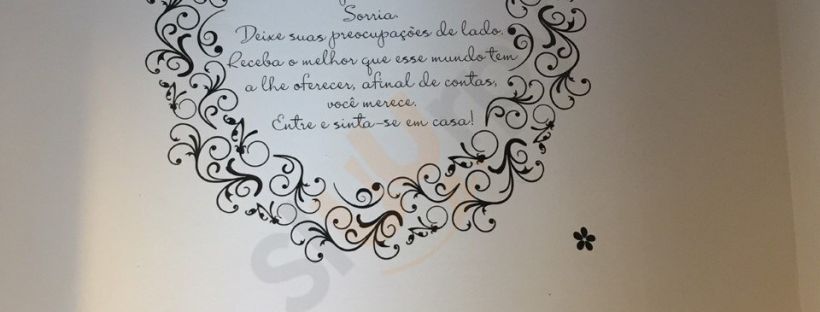 Sorria.
Deixe suas preocupações de lado.
Receba o melhor que esse mundo tem
a lhe oferecer, afinal de contas,
você merece.
Entre e sinta-se em casa!